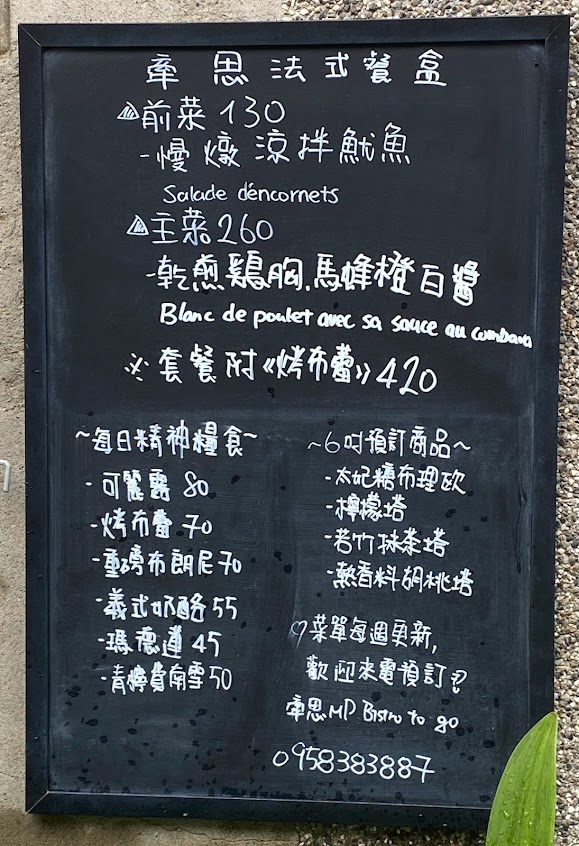 牽思法式餐盒
前菜130
-慢燉涼拌魷魚
Salade d'encornets
主菜260
-乾煎鷄胸.馬蜂橙白醬
Blanc de poulet avec sa sauce au combava
※套餐附《烤布蕾》420
~每日精神糧食~
-可麗露 80
-烤布蕾 70
-重磅布朗尼70
-義式奶酪55
-瑪德蓮 45
-青檸費南雪50
~6吋預訂商品~
-太妃糖布理歐
-檸檬塔
-若竹抹茶塔
-熱香料胡桃塔
♡菜單每週更新,
歡迎來電預訂
牽思MP Bistro to go
0958383887